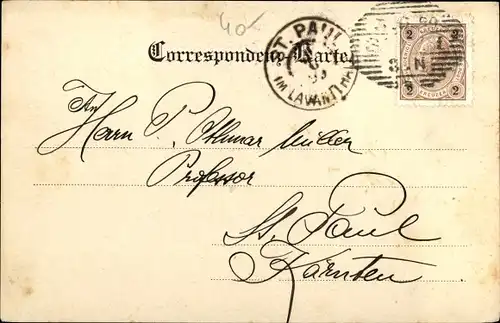 40-
Correspondenz-Karte
ST. PAUL
IM LAVANTTHAL
2 2
2 2
KREUZER
An
Herrn P. Othmar Müller
Professor
St. Paul
Kärnten